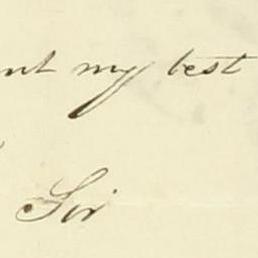 my best
Sir